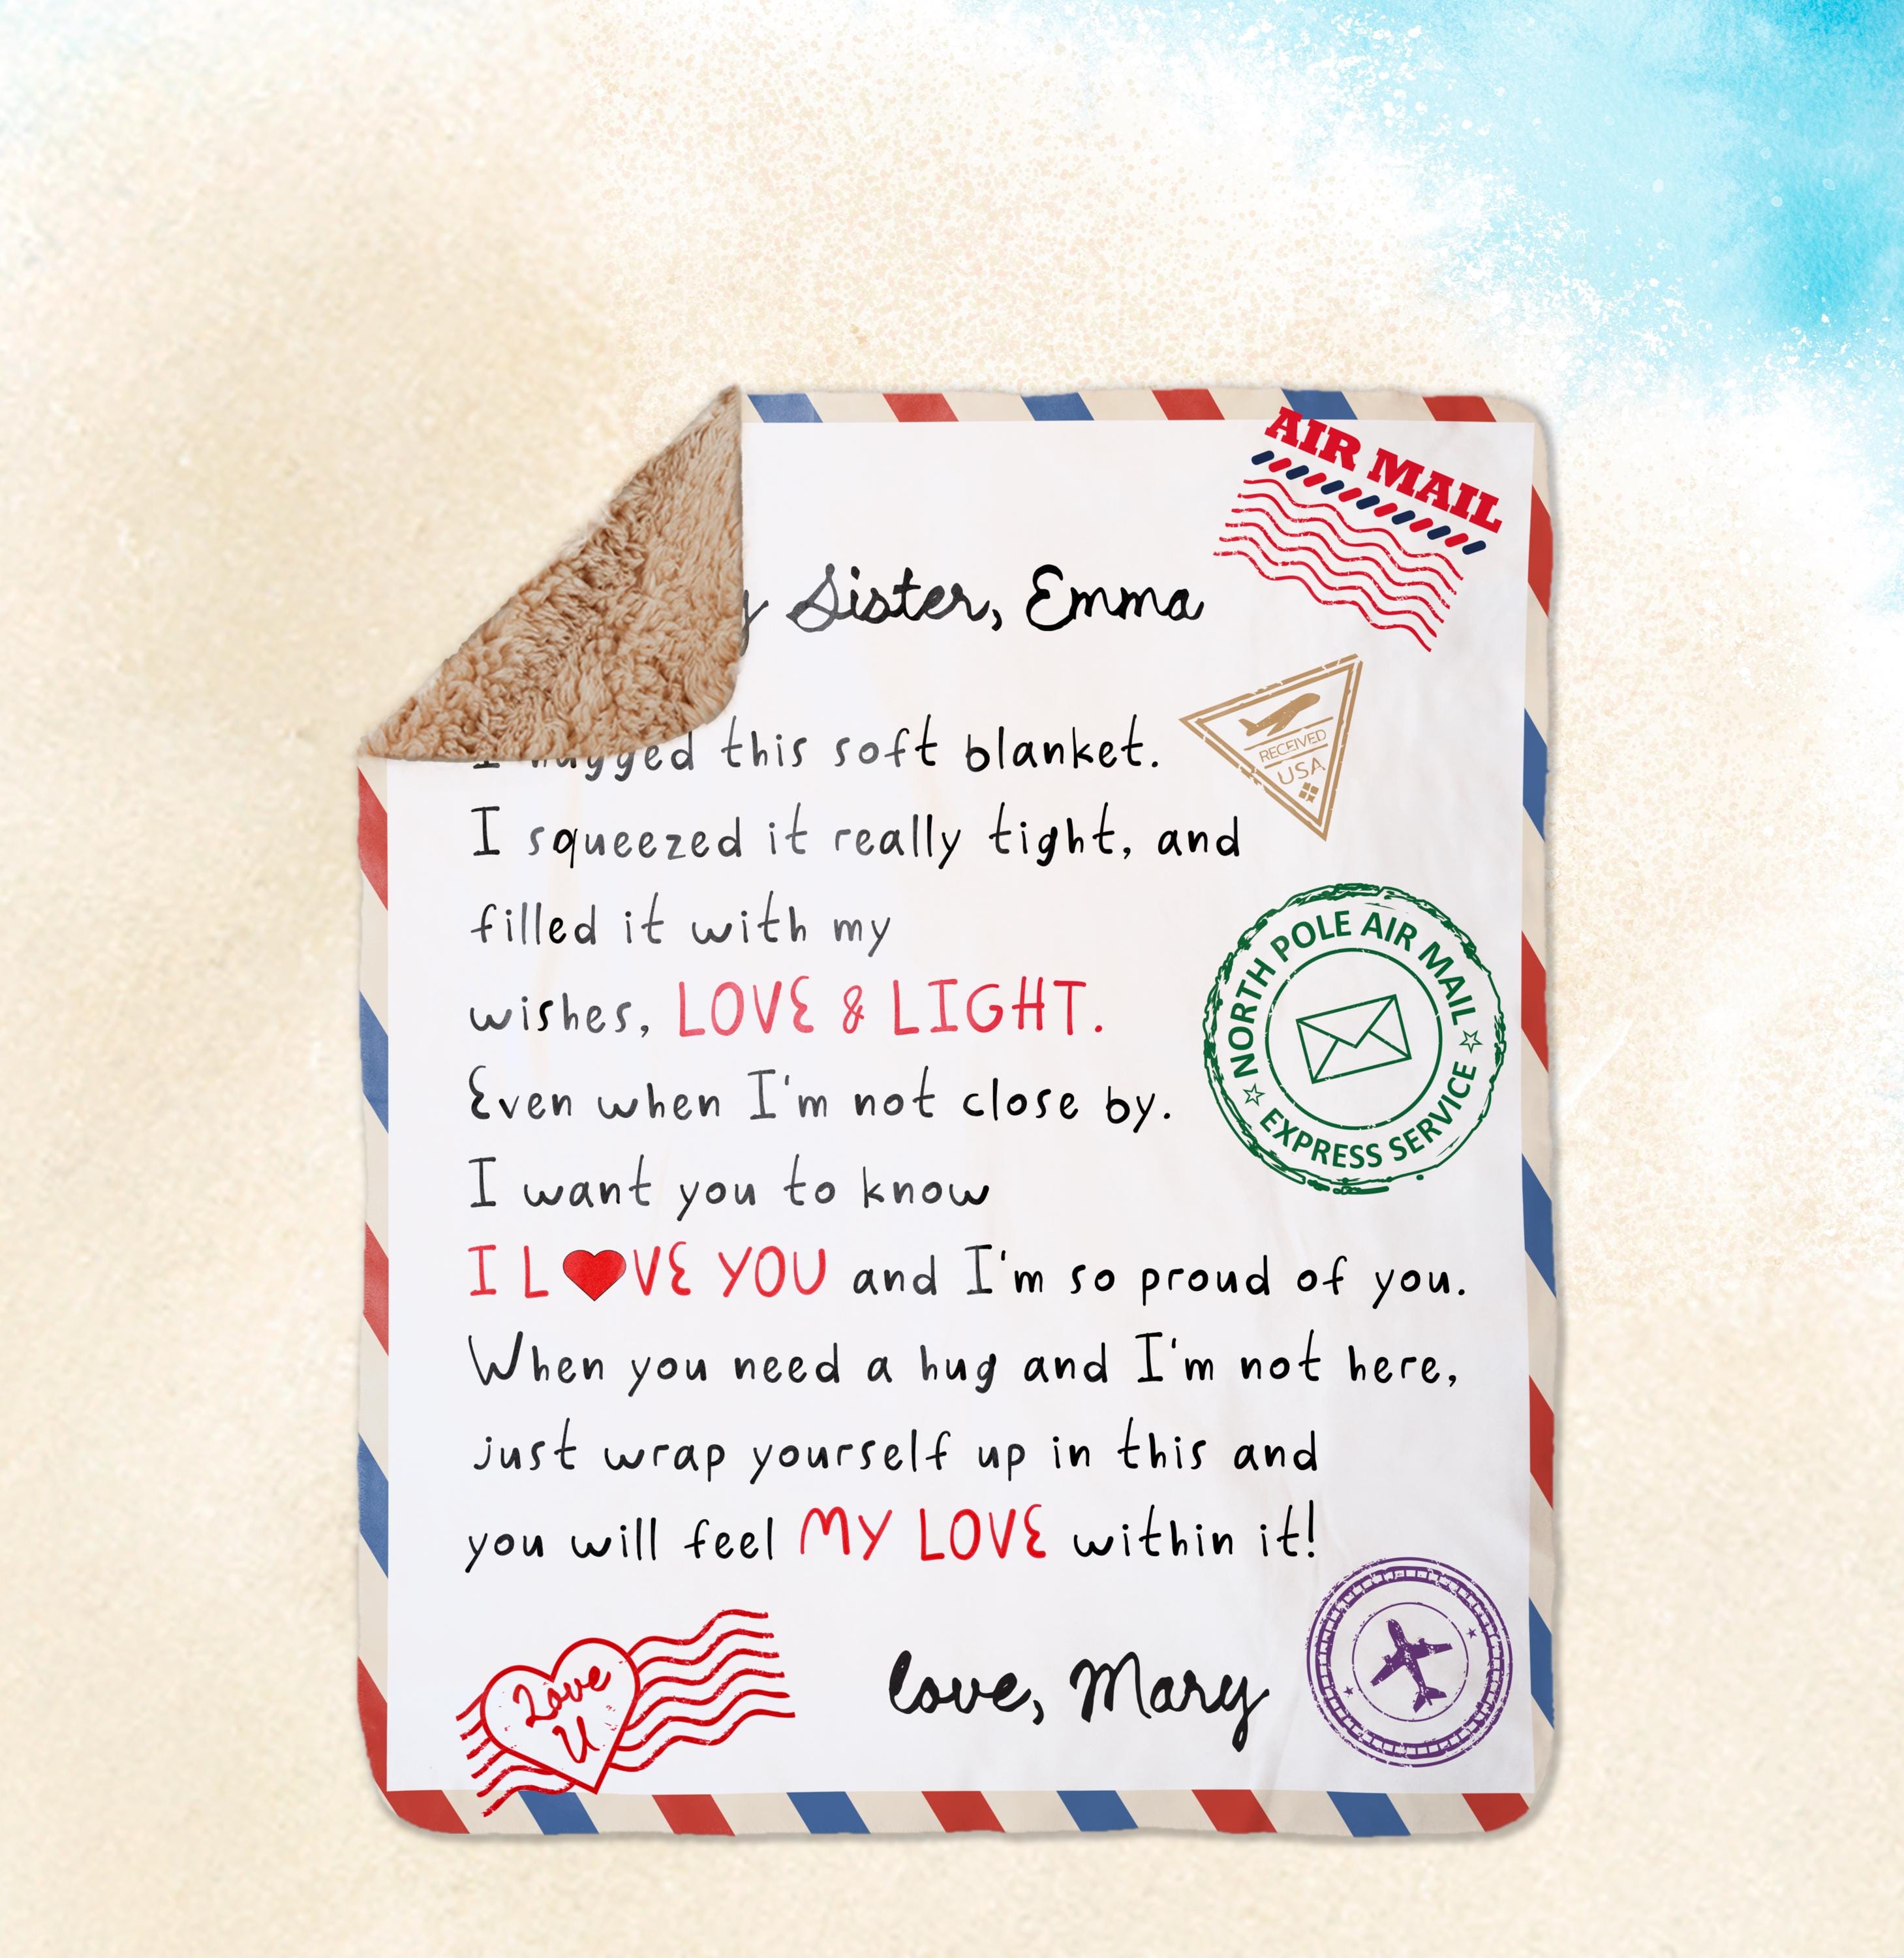 AIR MAIL
Sister, Emma
RECEIVED
USA
I hugged this soft blanket.
I squeezed it really tight, and
filled it with my
wishes, LOVE & LIGHT.
NORTH POLE AIR MAIL
EXPRESS SERVICE
Even when I'm not close by.
I want you to know
I L❤VE YOU and I'm so proud of you.
When you need a hug and I'm not here,
just wrap yourself up in this and
you will feel MY LOVE within it!
Love
U
love, Mary